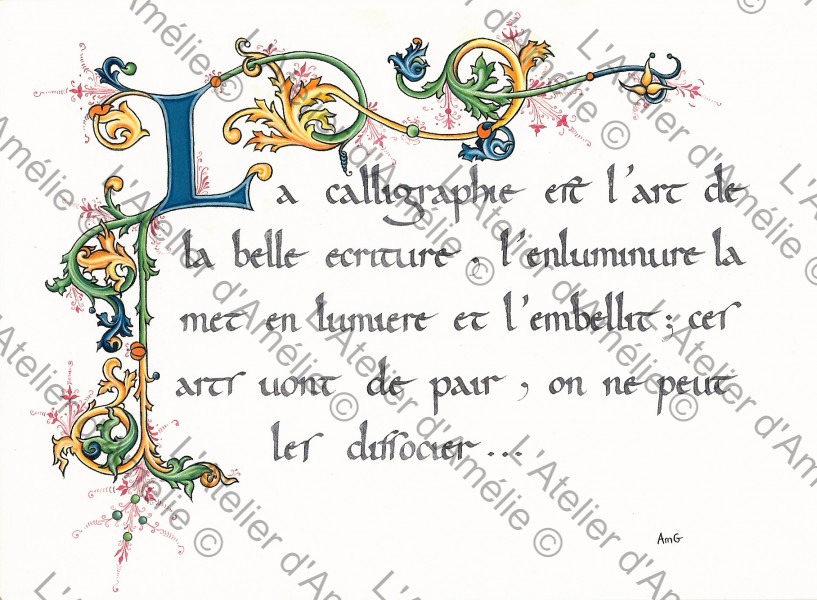 La calligraphie est l'art de
la belle ecriture, l'enluminure la
met en lumiere et l'embellit; ces
arts vont de pair, on ne peut
les dissocier...
AmG
L'Atelier d'Amélie ©